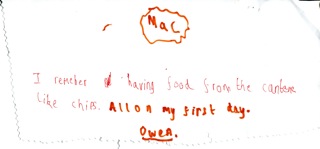 Mac
I remeber having food from the canteen
like chips. All on my first day.
Owen.